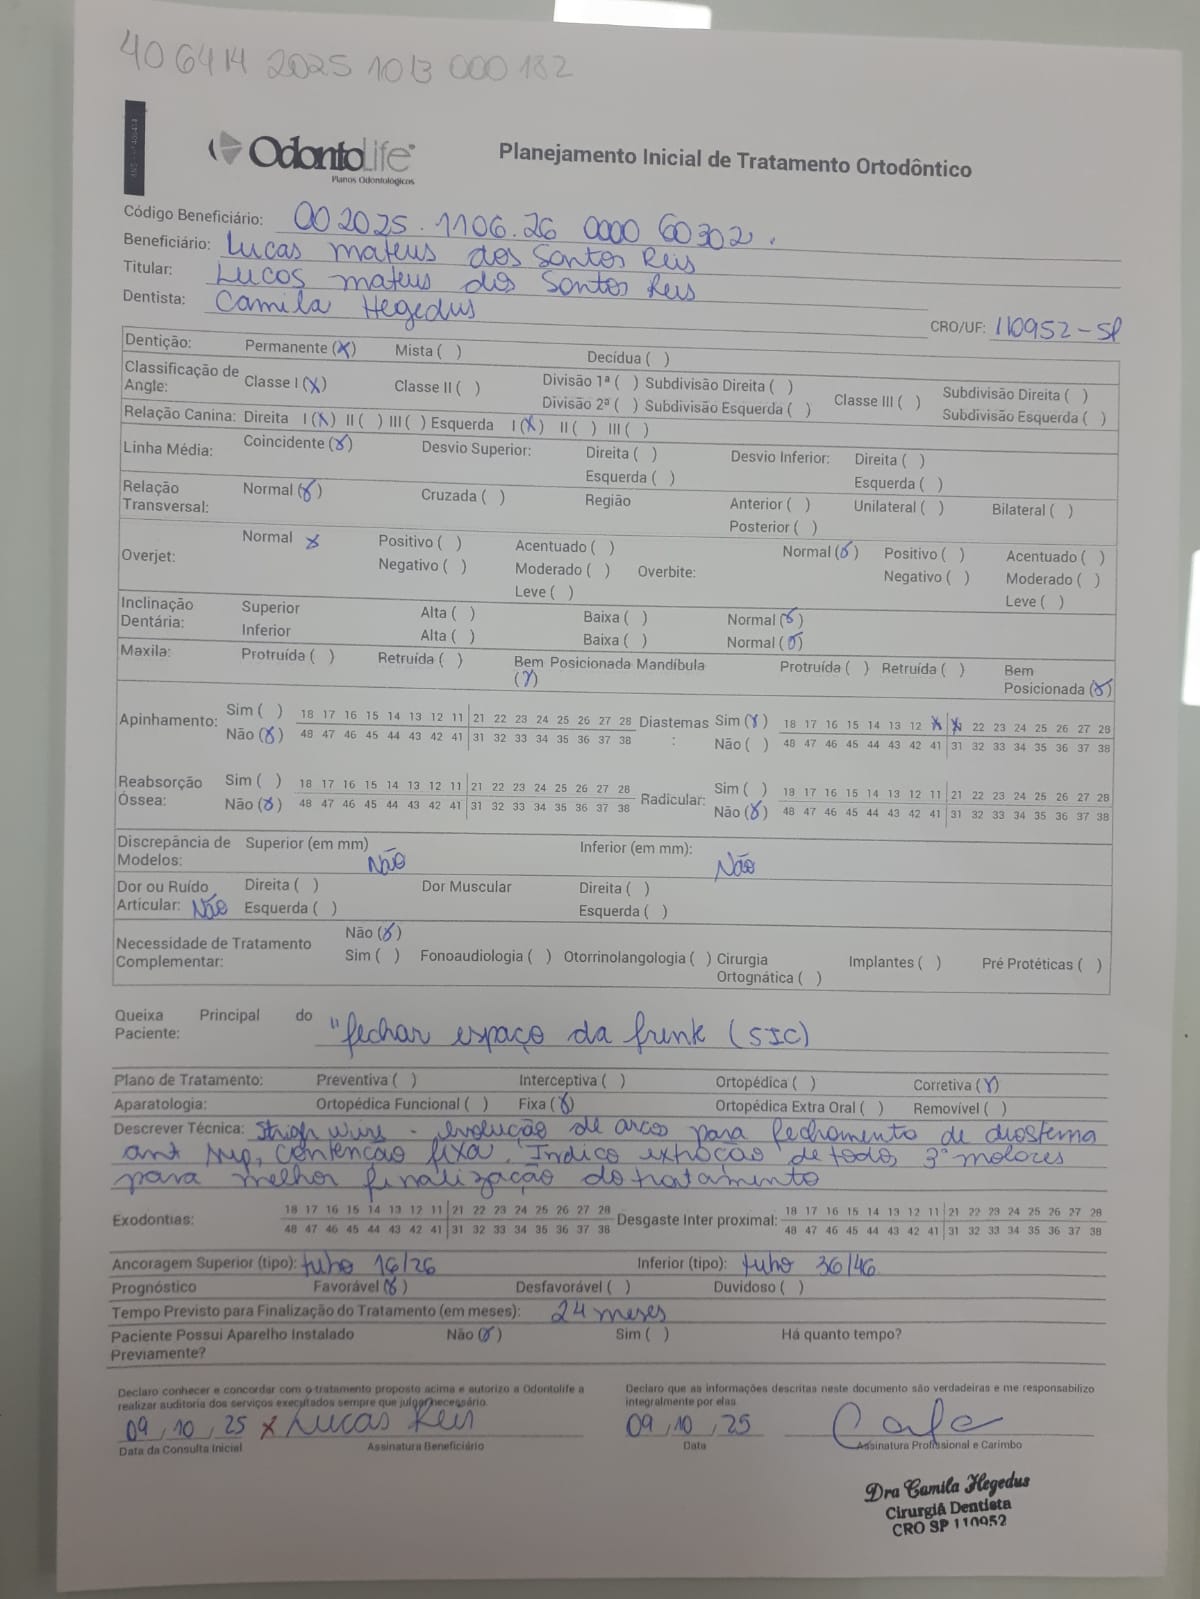 406414 2025 1013 000 132
OdontoLife
Planos Odontológicos
Planejamento Inicial de Tratamento Ortodôntico
Código Beneficiário: 002025.1106.26 0000 60302.
Beneficiário: Lucas mateus dos Santos Reis
Titular: Lucas mateus dos Santos Reis
Dentista: Camila Hegedus CRO/UF: 110952-SP
Dentição: Permanente (X) Mista ( ) Decídua ( )
Classificação de Angle: Classe I (X) Classe II ( ) Divisão 1ª ( ) Subdivisão Direita ( ) Classe III ( ) Subdivisão Direita ( )
Divisão 2ª ( ) Subdivisão Esquerda ( ) Subdivisão Esquerda ( )
Relação Canina: Direita I (X) II ( ) III ( ) Esquerda I (X) II ( ) III ( )
Linha Média: Coincidente (X) Desvio Superior: Direita ( ) Desvio Inferior: Direita ( )
Esquerda ( ) Esquerda ( )
Relação Transversal: Normal (X) Cruzada ( ) Região Anterior ( ) Unilateral ( ) Bilateral ( )
Posterior ( )
Overjet: Normal X Positivo ( ) Acentuado ( ) Overbite: Normal (X) Positivo ( ) Acentuado ( )
Negativo ( ) Moderado ( ) Negativo ( ) Moderado ( )
Leve ( ) Leve ( )
Inclinação Dentária: Superior Alta ( ) Baixa ( ) Normal (X)
Inferior Alta ( ) Baixa ( ) Normal (X)
Maxila: Protruída ( ) Retruída ( ) Bem Posicionada (X) Mandíbula Protruída ( ) Retruída ( ) Bem Posicionada (X)
Apinhamento: Sim ( ) 18 17 16 15 14 13 12 11 21 22 23 24 25 26 27 28 Diastemas: Sim (X) 18 17 16 15 14 13 12 X X 22 23 24 25 26 27 28
Não (X) 48 47 46 45 44 43 42 41 31 32 33 34 35 36 37 38 Não ( ) 48 47 46 45 44 43 42 41 31 32 33 34 35 36 37 38
Reabsorção Óssea: Sim ( ) 18 17 16 15 14 13 12 11 21 22 23 24 25 26 27 28 Radicular: Sim ( ) 18 17 16 15 14 13 12 11 21 22 23 24 25 26 27 28
Não (X) 48 47 46 45 44 43 42 41 31 32 33 34 35 36 37 38 Não (X) 48 47 46 45 44 43 42 41 31 32 33 34 35 36 37 38
Discrepância de Modelos: Superior (em mm) Não Inferior (em mm): Não
Dor ou Ruído Articular: Não Direita ( ) Dor Muscular Direita ( )
Esquerda ( ) Esquerda ( )
Necessidade de Tratamento Complementar: Não (X)
Sim ( ) Fonoaudiologia ( ) Otorrinolangologia ( ) Cirurgia Ortognática ( ) Implantes ( ) Pré Protéticas ( )
Queixa Principal do Paciente: "fechar espaço da frente (SIC)
Plano de Tratamento: Preventiva ( ) Interceptiva ( ) Ortopédica ( ) Corretiva (X)
Aparatologia: Ortopédica Funcional ( ) Fixa (X) Ortopédica Extra Oral ( ) Removível ( )
Descrever Técnica: Strigh Wire - evolução de arcos para fechamento de diastema
ant sup, contenção fixa. Indico extração de todos 3ºs molares
para melhor finalização do tratamento
Exodontias: 18 17 16 15 14 13 12 11 21 22 23 24 25 26 27 28 Desgaste Inter proximal: 18 17 16 15 14 13 12 11 21 22 23 24 25 26 27 28
48 47 46 45 44 43 42 41 31 32 33 34 35 36 37 38 48 47 46 45 44 43 42 41 31 32 33 34 35 36 37 38
Ancoragem Superior (tipo): tubo 16/26 Inferior (tipo): tubo 36/46
Prognóstico Favorável (X) Desfavorável ( ) Duvidoso ( )
Tempo Previsto para Finalização do Tratamento (em meses): 24 meses
Paciente Possui Aparelho Instalado Previamente? Não (X) Sim ( ) Há quanto tempo?
Declaro conhecer e concordar com o tratamento proposto acima e autorizo a Odontolife a
realizar auditoria dos serviços executados sempre que julgar necessário.
Declaro que as informações descritas neste documento são verdadeiras e me responsabilizo
integralmente por elas.
09, 10, 25 X Lucas Reis 09, 10, 25
Data da Consulta Inicial Assinatura Beneficiário Data Assinatura Profissional e Carimbo
Dra Camila Hegedus
Cirurgiã Dentista
CRO SP 110952